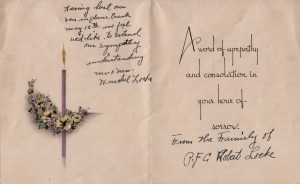 Having lost our
son in plane crash
May 18th we feel
we'd like to extend
our sympathy
understanding
Mr & Mrs
Herschel Locke
A word of sympathy
and consolation in
your hour of
sorrow.
From the Framily of
P.F.C. Robert Locke